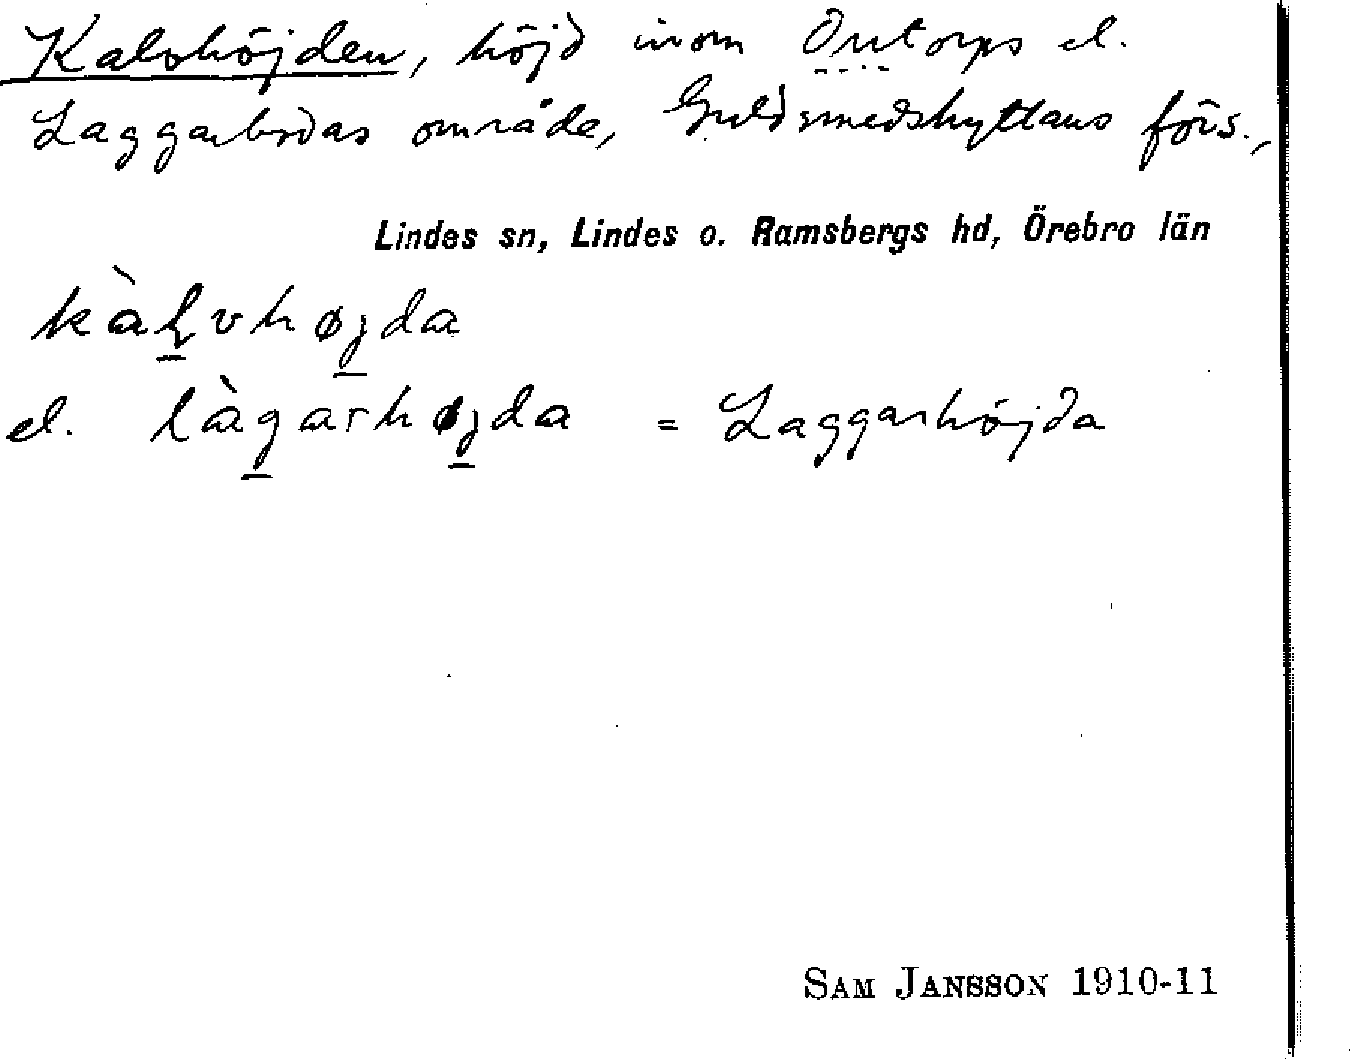 Kalvhöjden, höjd inom Ontorps el.
Laggarbodas område, Guldsmedshyttans förs.,
Lindes sn, Lindes o. Ramsbergs hd, Örebro län
kàl̨vhøjda
el. làgarhøjda = Laggarhöjda
SAM JANSSON 1910-11